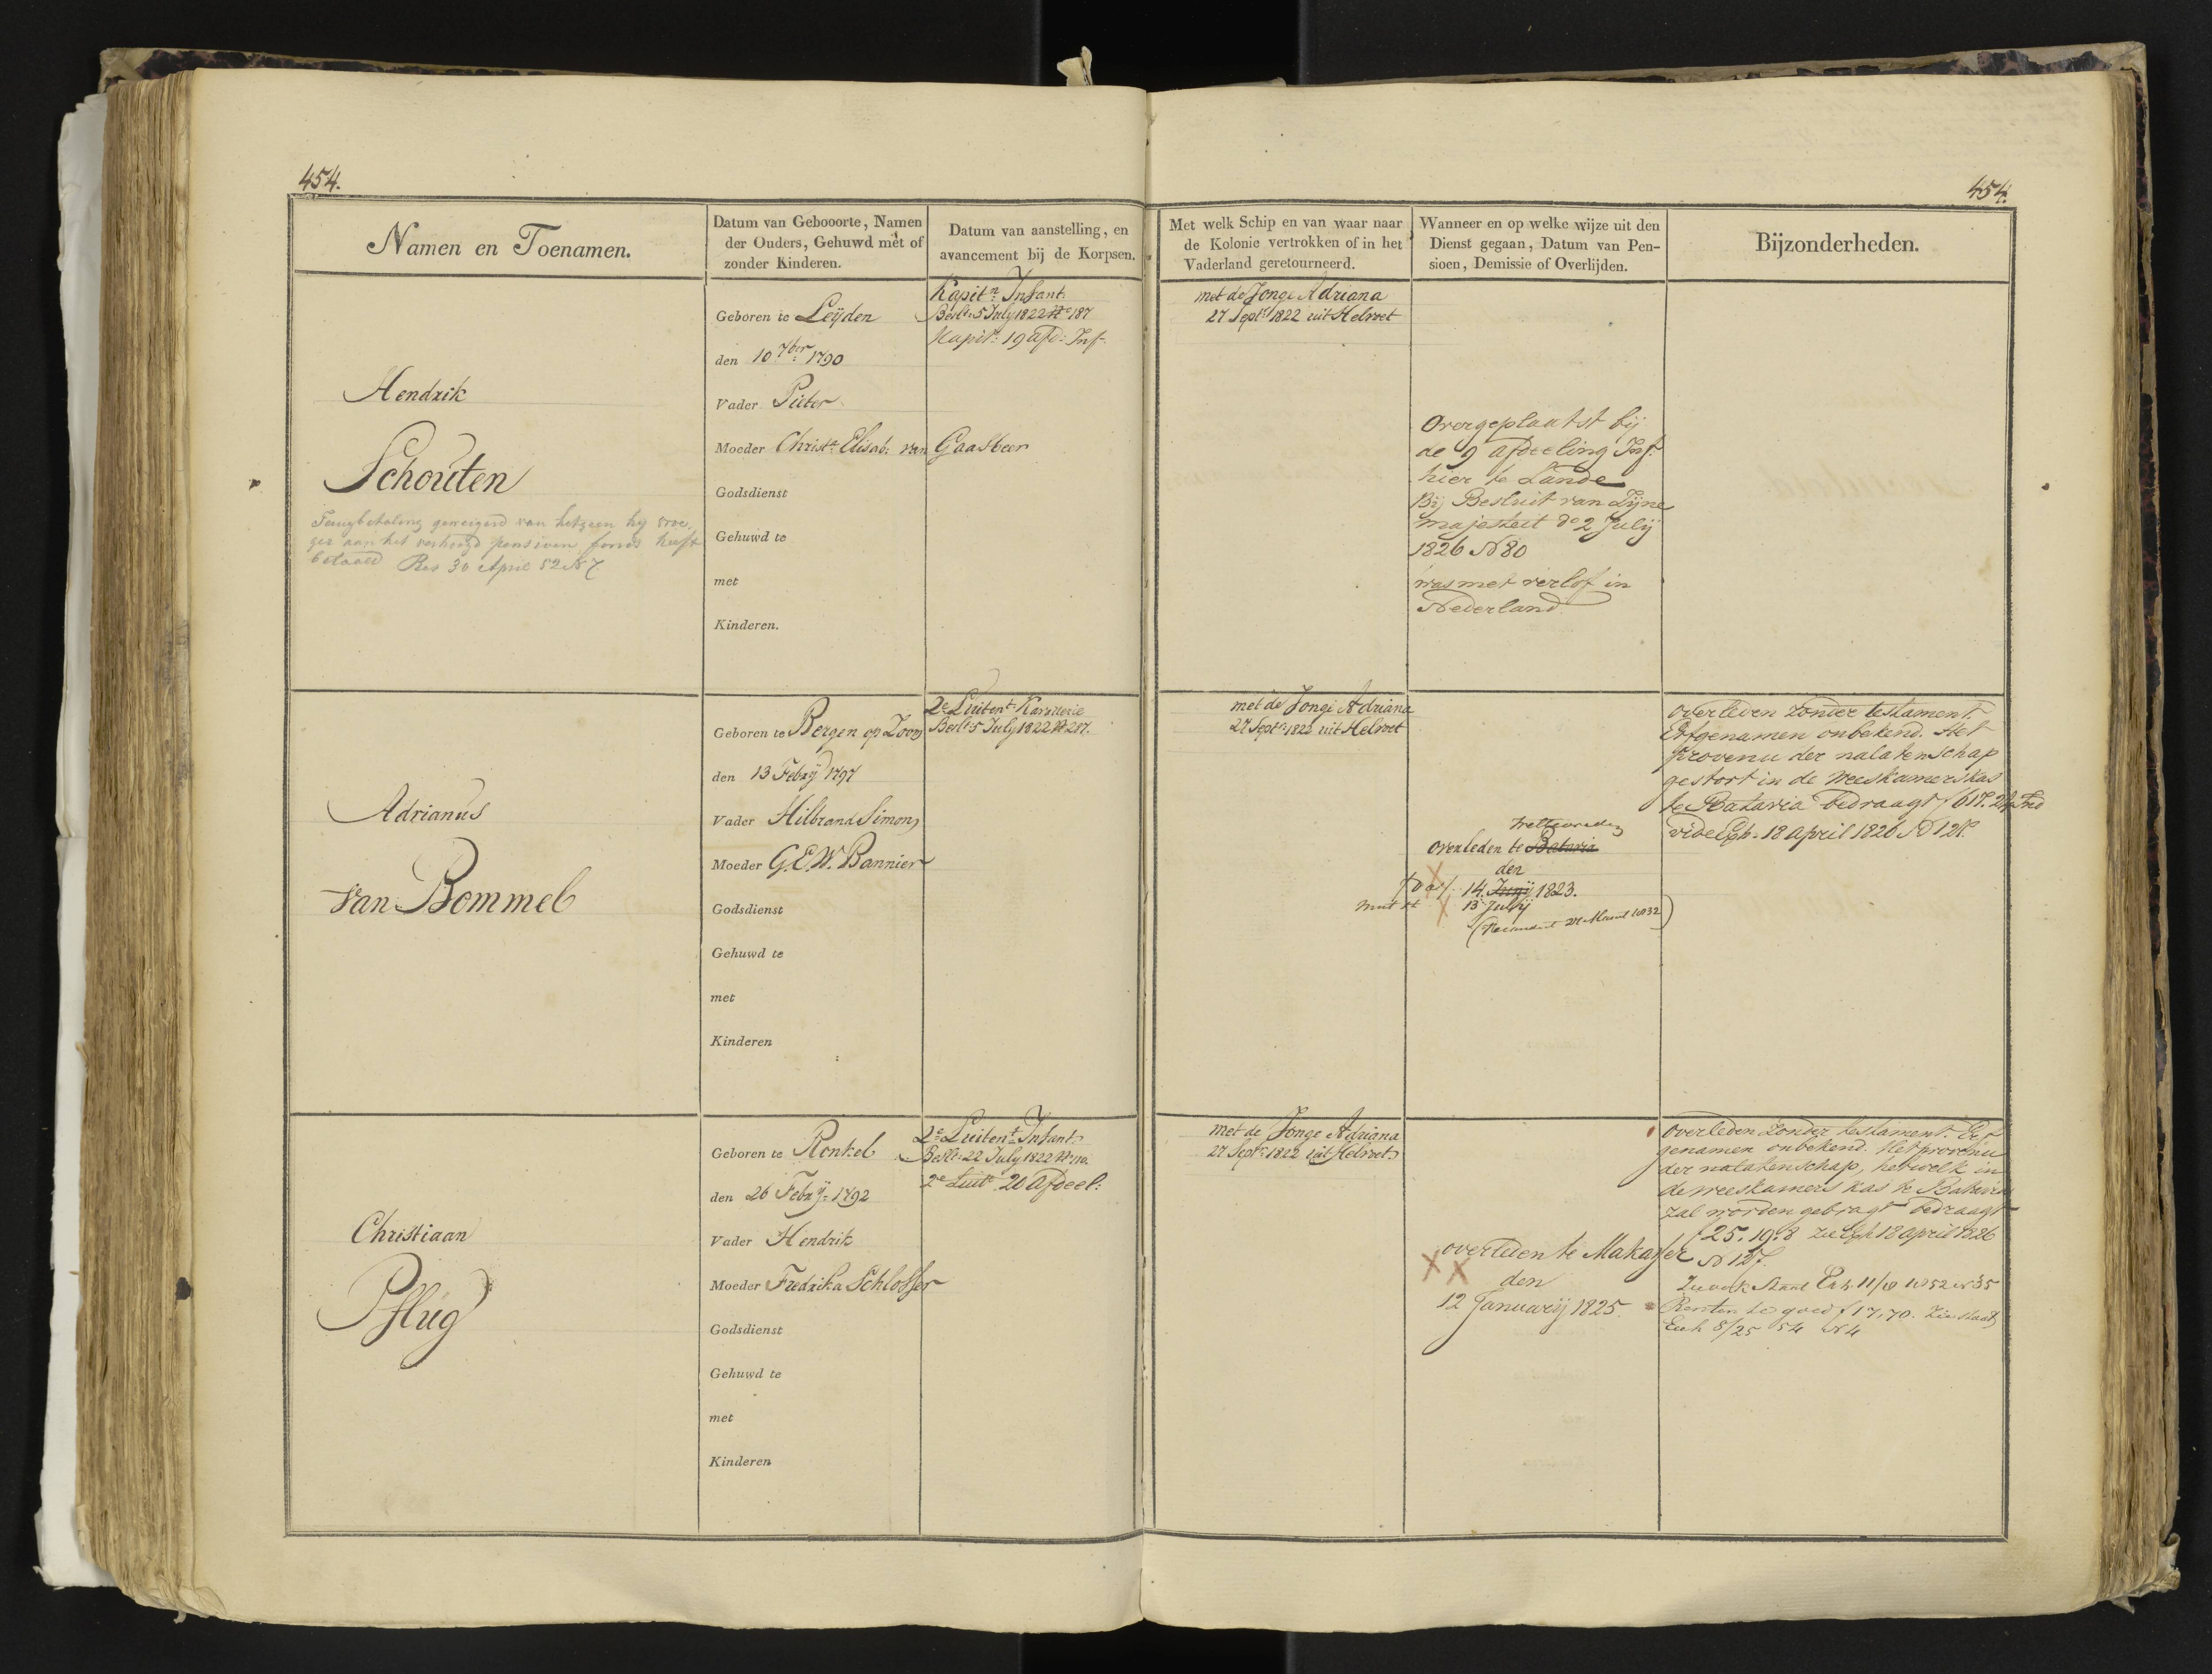 454.
454.
Namen en Toenamen.
Datum van Gebooorte, Namen
der Ouders, Gehuwd met of
zonder Kinderen.
Datum van aanstelling, en
avancement bij de Korpsen.
Met welk Schip en van waar naar
de Kolonie vertrokken of in het
Vaderland geretourneerd.
Wanneer en op welke wijze uit den
Dienst gegaan, Datum van Pen-
sioen, Demissie of Overlijden.
Bijzonderheden.
Hendrik
Schouten
Terugbetaling geweigerd van hetgeen hij vroe
ger aan het verhoogd pensioen fonds heeft
betaald Res 30 April 52 N 7
Geboren te Leijden
den 10 7ber 1790
Vader Pieter
Moeder Christa Elisab: van Gaasbeer
Godsdienst
Gehuwd te
met
Kinderen.
Kapitn Infant:
Beslt: 5 July 1822 No 187
Kapit: 19 afd: Inf.
met de Jonge Adriana
27 Septr 1822 uit Helvoet
Overgeplaatst bij
de 9 afdeeling Inf:
hier te Lande
Bij Besluit van Zijne
majesteit de 2 Julij
1826 N 80
was met verlof in
Nederland
Adrianus
van Bommel
Geboren te Bergen op Zoom
den 13 Febrij 1797
Vader Hilbrand Simons
Moeder G.E.W. Bannier
Godsdienst
Gehuwd te
met
Kinderen
2e Luitent Kavallerie
Beslt: 5 July 1822 No 287.
met de Jonge Adriana
27 Septr: 1822 uit Helvoet
Weltevreden
overleden te Batavia
den
14 Junij 1823.
13 Julij
overleden zonder testament.
Erfgenamen onbekend. Het
provenu der nalatenschap
gestort in de weeskamers kas
te Batavia bedraagt f 617.24 Ind
vide Exh. 18 april 1826 N 127
Christiaan
Pflug
Geboren te Ronkel
den 26 Febrij: 1792
Vader Hendrik
Moeder Fredrika Schlosser
Godsdienst
Gehuwd te
met
Kinderen
2e Luitent Infant:
Beslt: 22 July 1822 No 110.
2e Luit 20 afdeel:
met de Jonge Adriana
27 Septr: 1822 uit Helvoet
overleden te Makasser
den
12 Januarij 1825.
overleden zonder testament. Erf
genamen onbekend. Het provenu
der nalatenschap, hetwelk in
de weeskamers kas te Batavia
zal worden gebragt bedraagt
f 25.19.8 zie Exh 18 april 1826
N 127.
Zie ook Staat Exh 11/10 1852 N 35
Renten te goed f 17,70. Zie staat
Exh 8/25 54 N 4